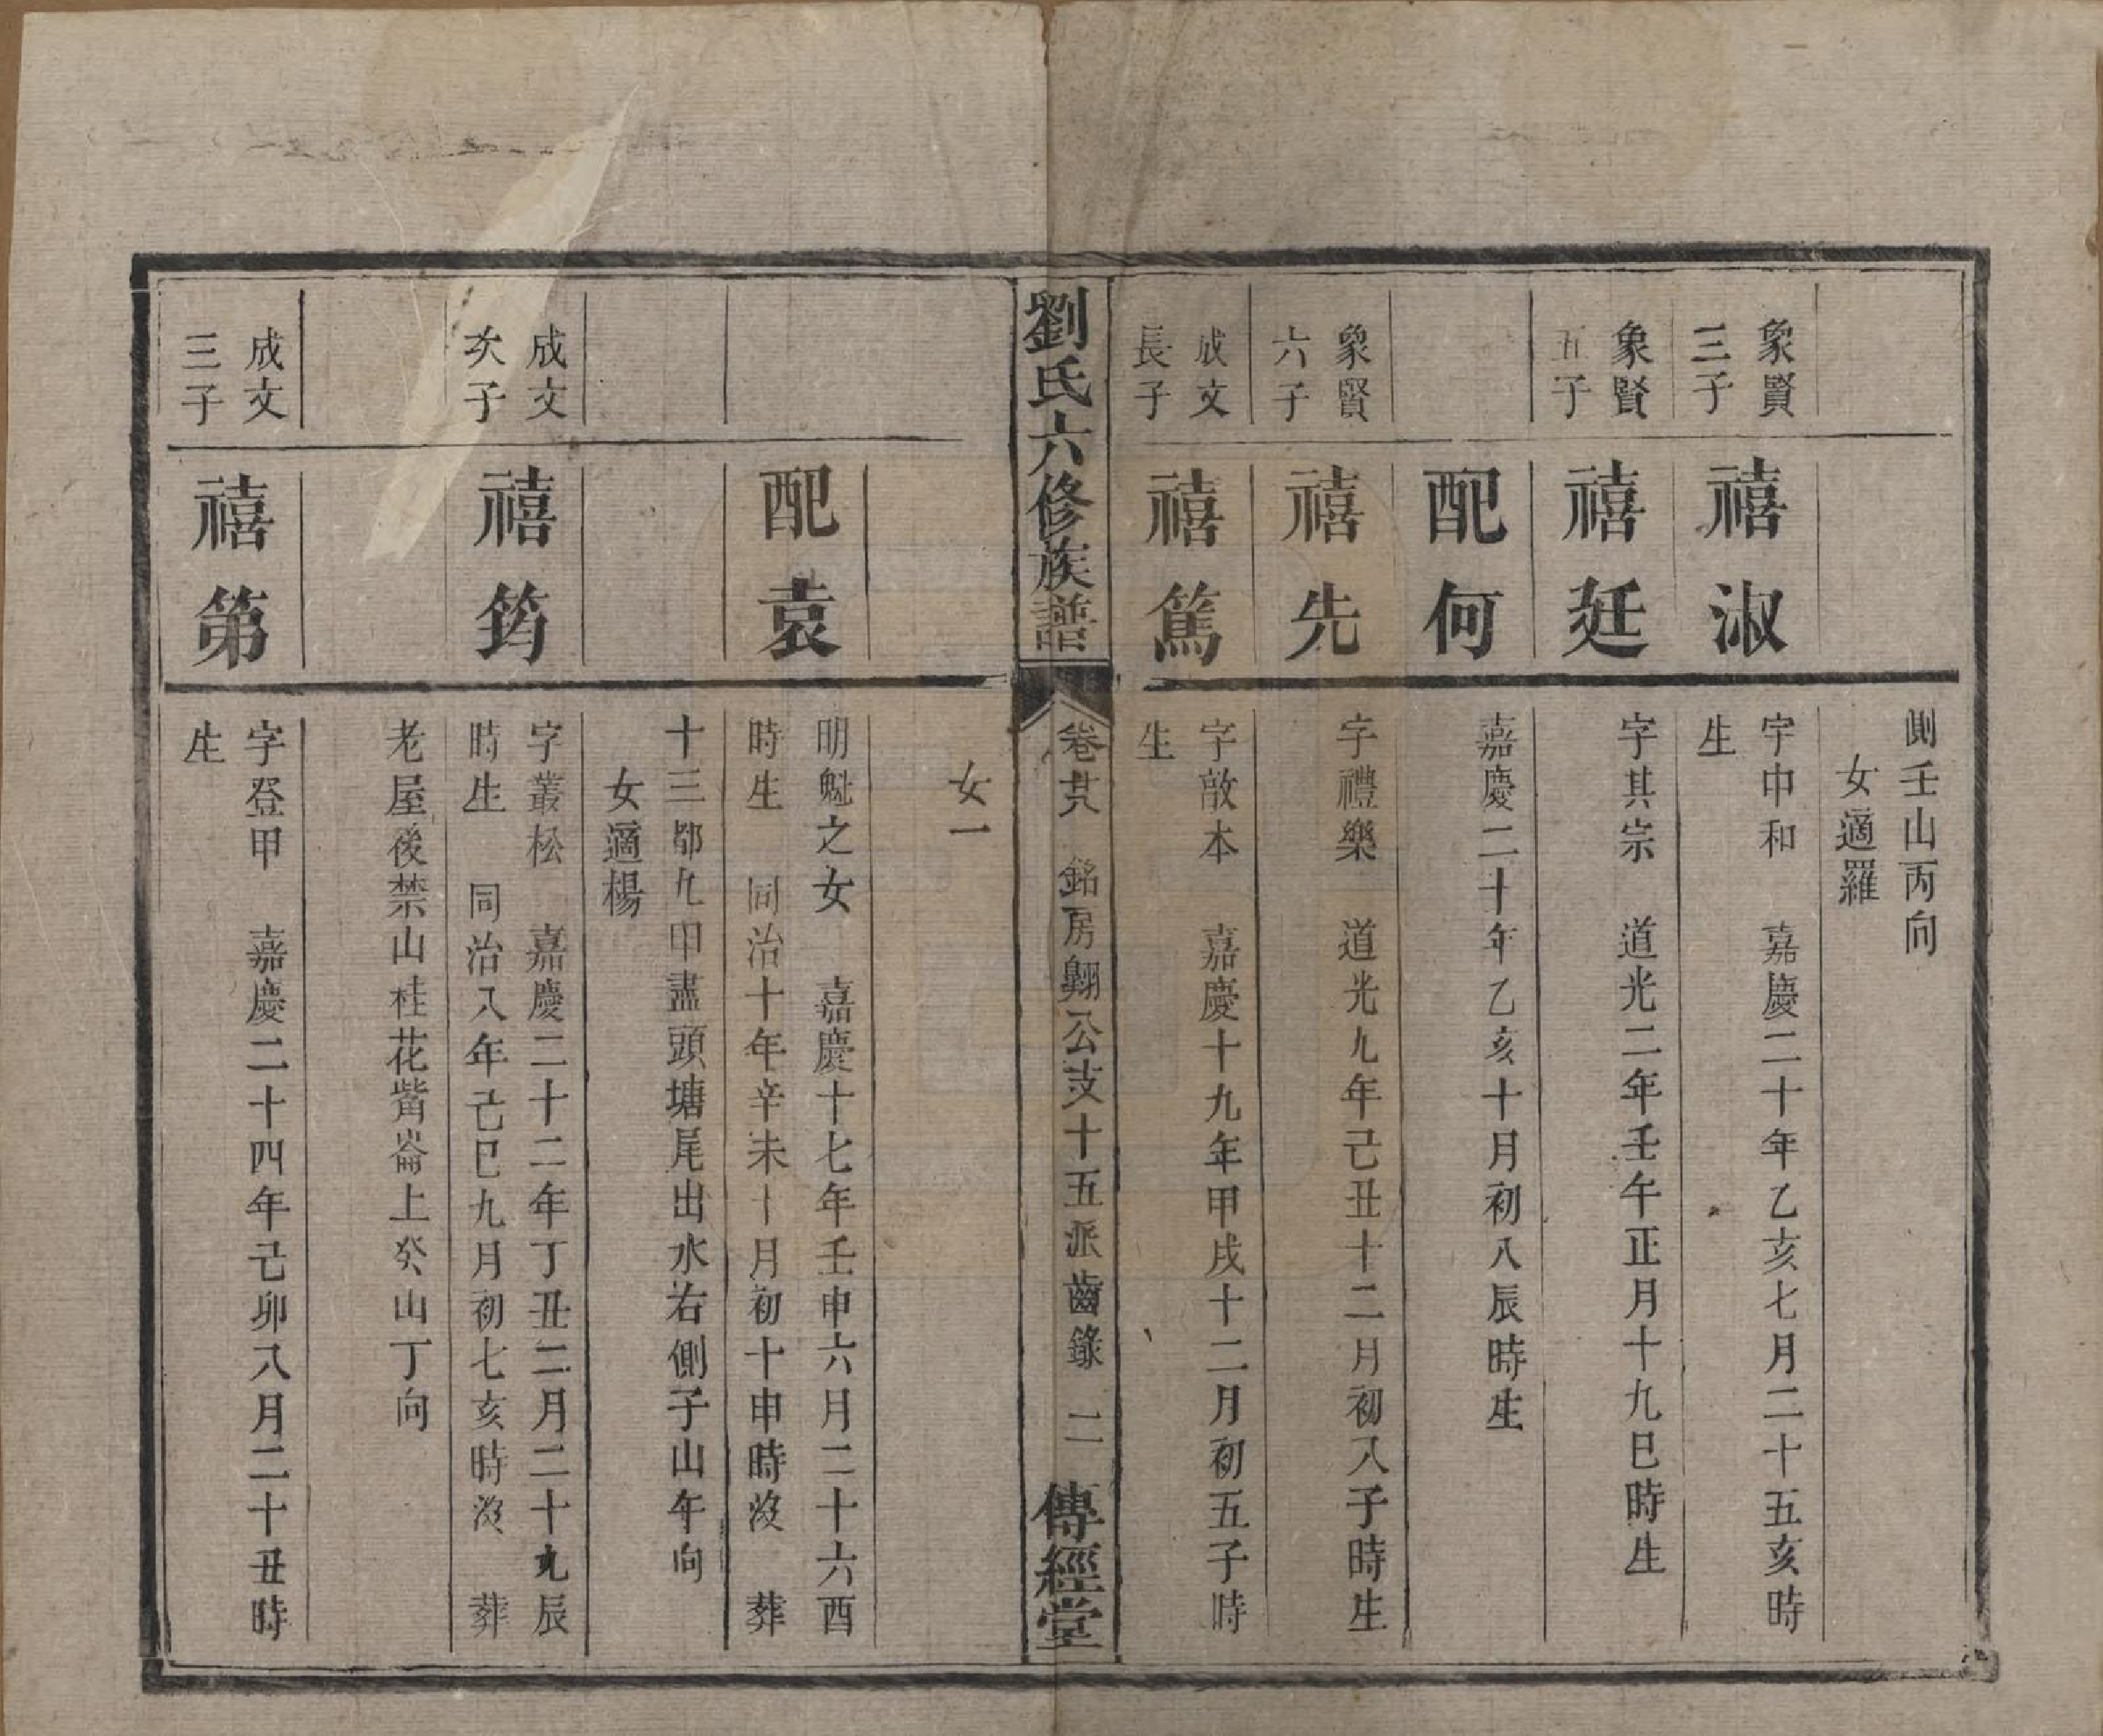 側壬山丙向
女適羅
象賢
三子
禧淑
字中和　嘉慶二十年乙亥七月二十五亥時
生
象賢
五子
禧廷
字其宗　道光二年壬午正月十九巳時生
配何
嘉慶二十年乙亥十月初八辰時生
象賢
六子
禧先
字禮樂　道光九年己丑十二月初八子時生
成文
長子
禧篤
字敦本　嘉慶十九年甲戌十二月初五子時
生
劉氏六修族譜
卷廿八　銘房翺公支十五派齒錄　二
傳經堂
女一
配袁
明魁之女　嘉慶十七年壬申六月二十六酉
時生　同治十年辛未十月初十申時沒　葬
十三都九甲盡頭塘尾出水右側子山午向
女適楊
成文
次子
禧筠
字叢松　嘉慶二十二年丁丑二月二十九辰
時生　同治八年己巳九月初七亥時沒　葬
老屋後禁山桂花觜崙上癸山丁向
成文
三子
禧第
字登甲　嘉慶二十四年己卯八月二十丑時
生